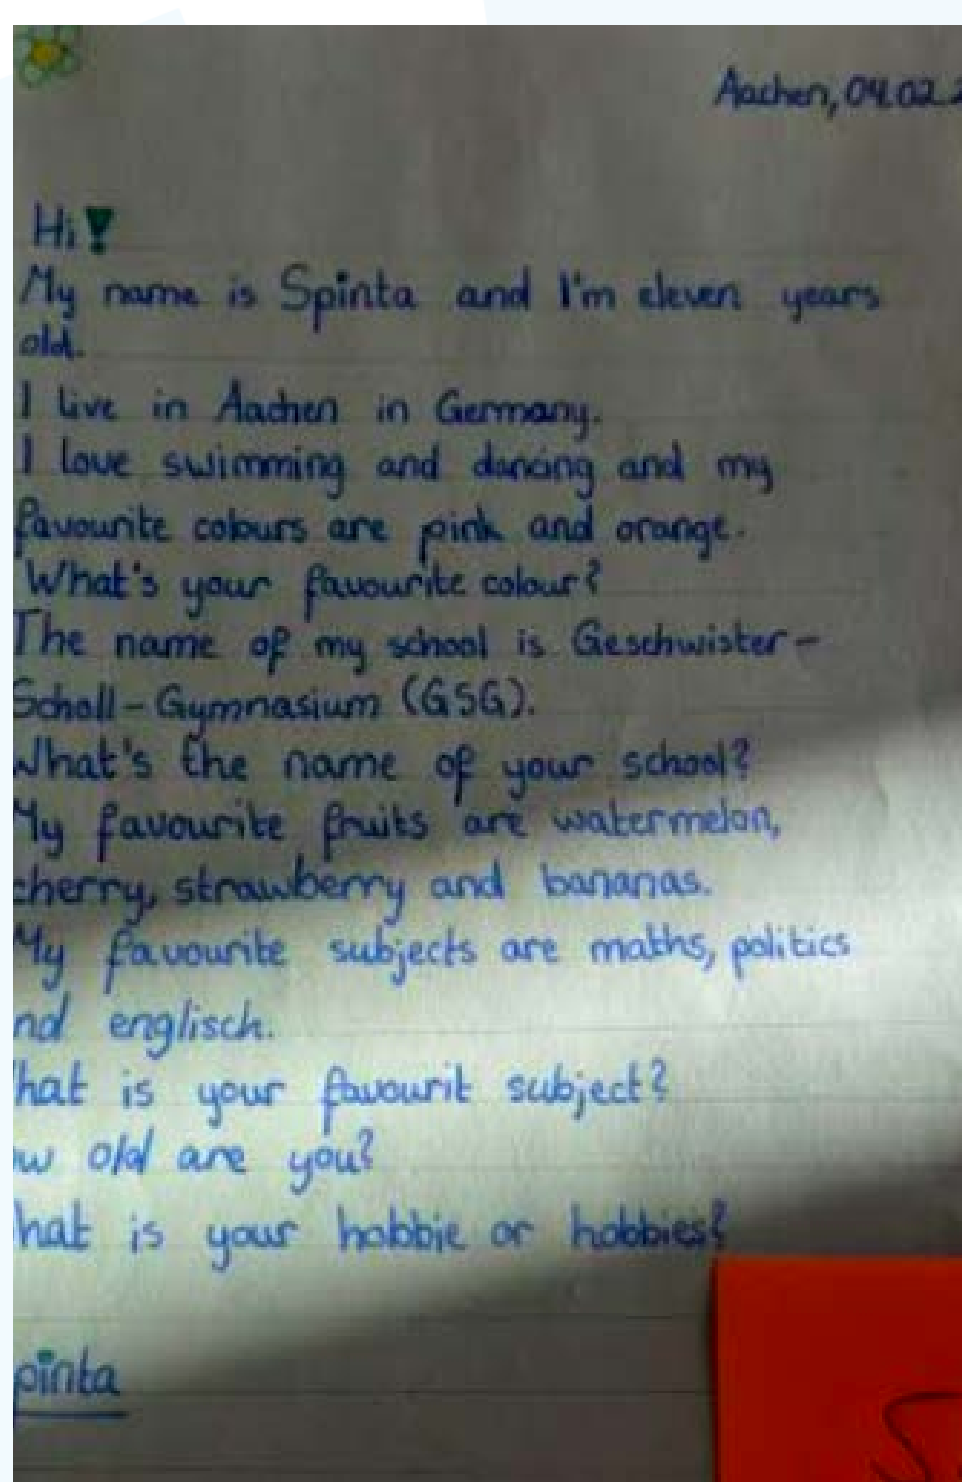 Aachen, 04.02.2
Hi!
My name is Spinta and I'm eleven years
old.
I live in Aachen in Germany.
I love swimming and dancing and my
favourite colours are pink and orange.
What's your favourite colour?
The name of my school is Geschwister-
Scholl-Gymnasium (GSG).
What's the name of your school?
My favourite fruits are watermelon,
cherry, strawberry and bananas.
My favourite subjects are maths, politics
nd englisch.
hat is your favourit subject?
ow old are you?
hat is your hobbie or hobbies?
pinta